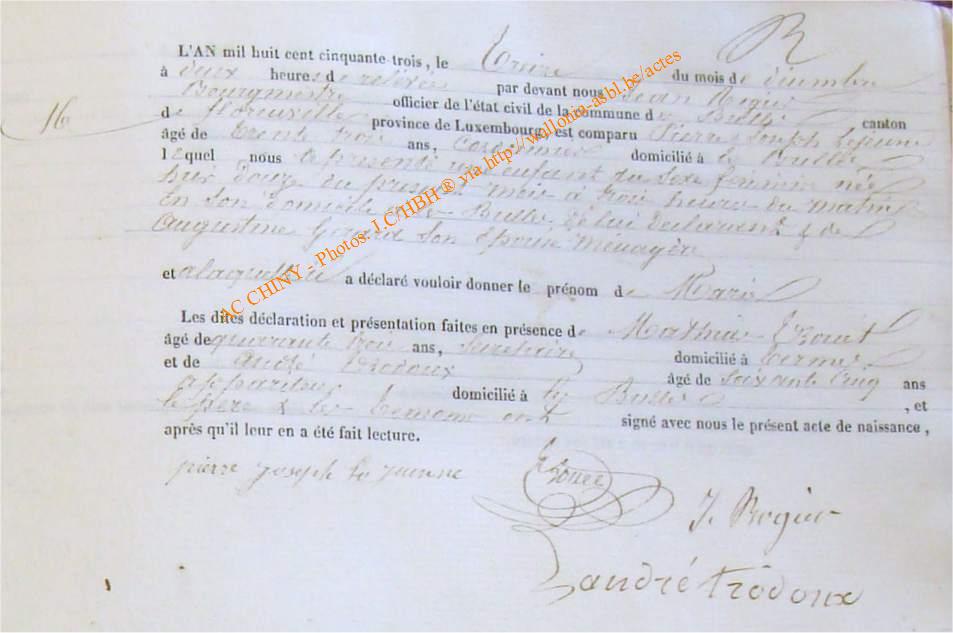 R
L'AN mil huit cent cinquante-trois, le treize du mois de décembre
à deux heures de relevée par devant nous Jean Rogier
Bourgmestre officier de l'état civil de la commune de Bulles canton
16
de florenville province de Luxembourg, est comparu Pierre Joseph Lejeune
âgé de trente trois ans, Cordonnier domicilié à les Bulles
lequel nous a présenté un enfant du sexe féminin née
hier douze du présent mois à trois heures du matin
en son domicile à les Bulles de lui déclarant & de
Augustine Gérard son épouse ménagère
et a laquelle il a déclaré vouloir donner le prénom de Marie
Les dites déclaration et présentation faites en présence de Mathias
âgé de quarante trois ans, secrétaire domicilié à termes
et de André Trodoux âgé de soixante cinq ans
domicilié à les Bulles , et
le père & les témoins ont signé avec nous le présent acte de naissance,
après qu'il leur en a été fait lecture.
pierre joseph le jeunne
J. Rogier
andré trodoux
AC CHINY - Photos: J.C/HBH ® via http://wallonia-asbl.be/actes